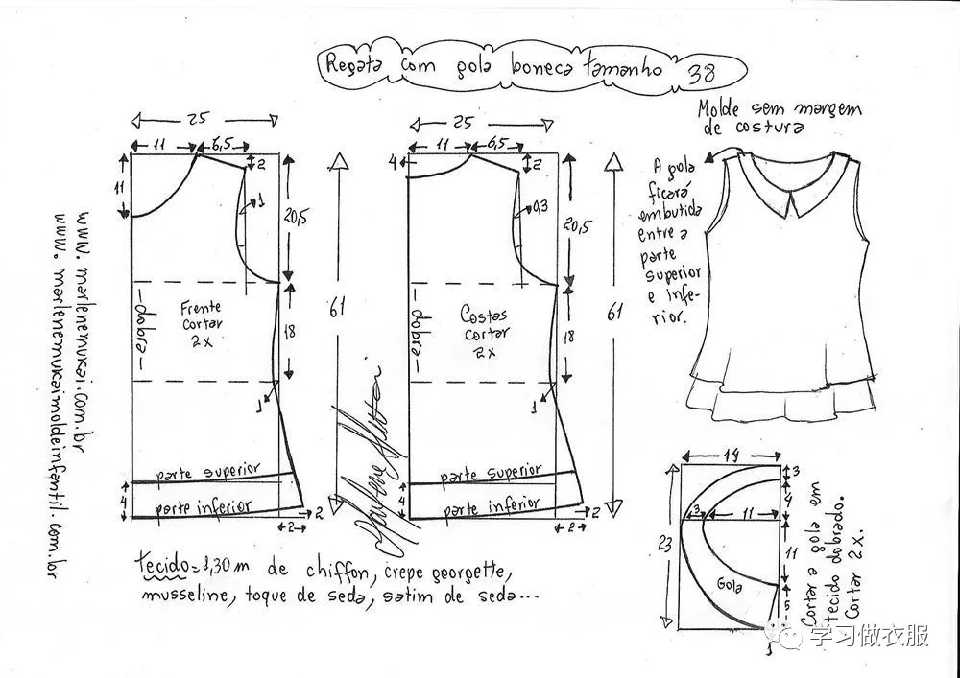 Regata com gola boneca tamanho 38
Molde sem margem
de costura
25
11
6,5
2
11
1
20,5
61
18
Frente
cortar
2x
-dobra-
1
parte superior
parte inferior
4
2
2
25
11
6,5
4
2
0,3
20,5
61
18
Costas
cortar
2x
-dobra-
1
parte superior
parte inferior
4
2
2
A gola
ficará
embutida
entre a
parte
superior
e infe-
rior.
www.marlenemukai.com.br
www.marlenemukaimoldeinfantil.com.br
tecido=1,30m de chiffon, crepe georgette,
musseline, toque de seda, satim de seda...
3
4
3
11
23
11
Gola
5
1
Cortar a gola em
tecido dobrado.
Cortar 2x.
学习做衣服